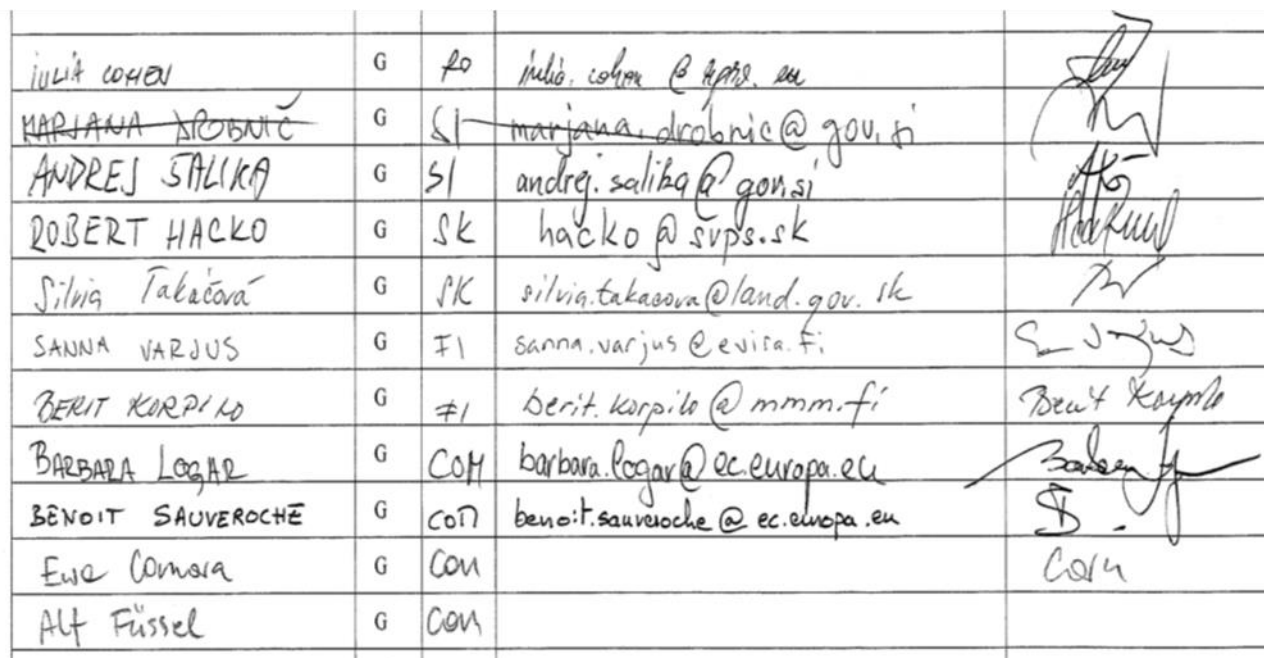 IULIA COHEN G RO iulia.cohen@rpro.eu
MARJANA DROBNIČ G SI marjana.drobnic@gov.si
ANDREJ SALIKA G SI andrej.salika@gov.si
ROBERT HACKO G SK hacko@svps.sk
Silvia Takáčová G SK silvia.takacova@land.gov.sk
SANNA VARJUS G FI sanna.varjus@evira.fi
BERIT KORPILO G FI berit.korpilo@mmm.fi Berit Korpilo
BARBARA LOGAR G COM barbara.logar@ec.europa.eu
BENOIT SAUVEROCHE G COM benoit.sauveroche@ec.europa.eu
Ewa Camara G COM
Alf Füssel G COM